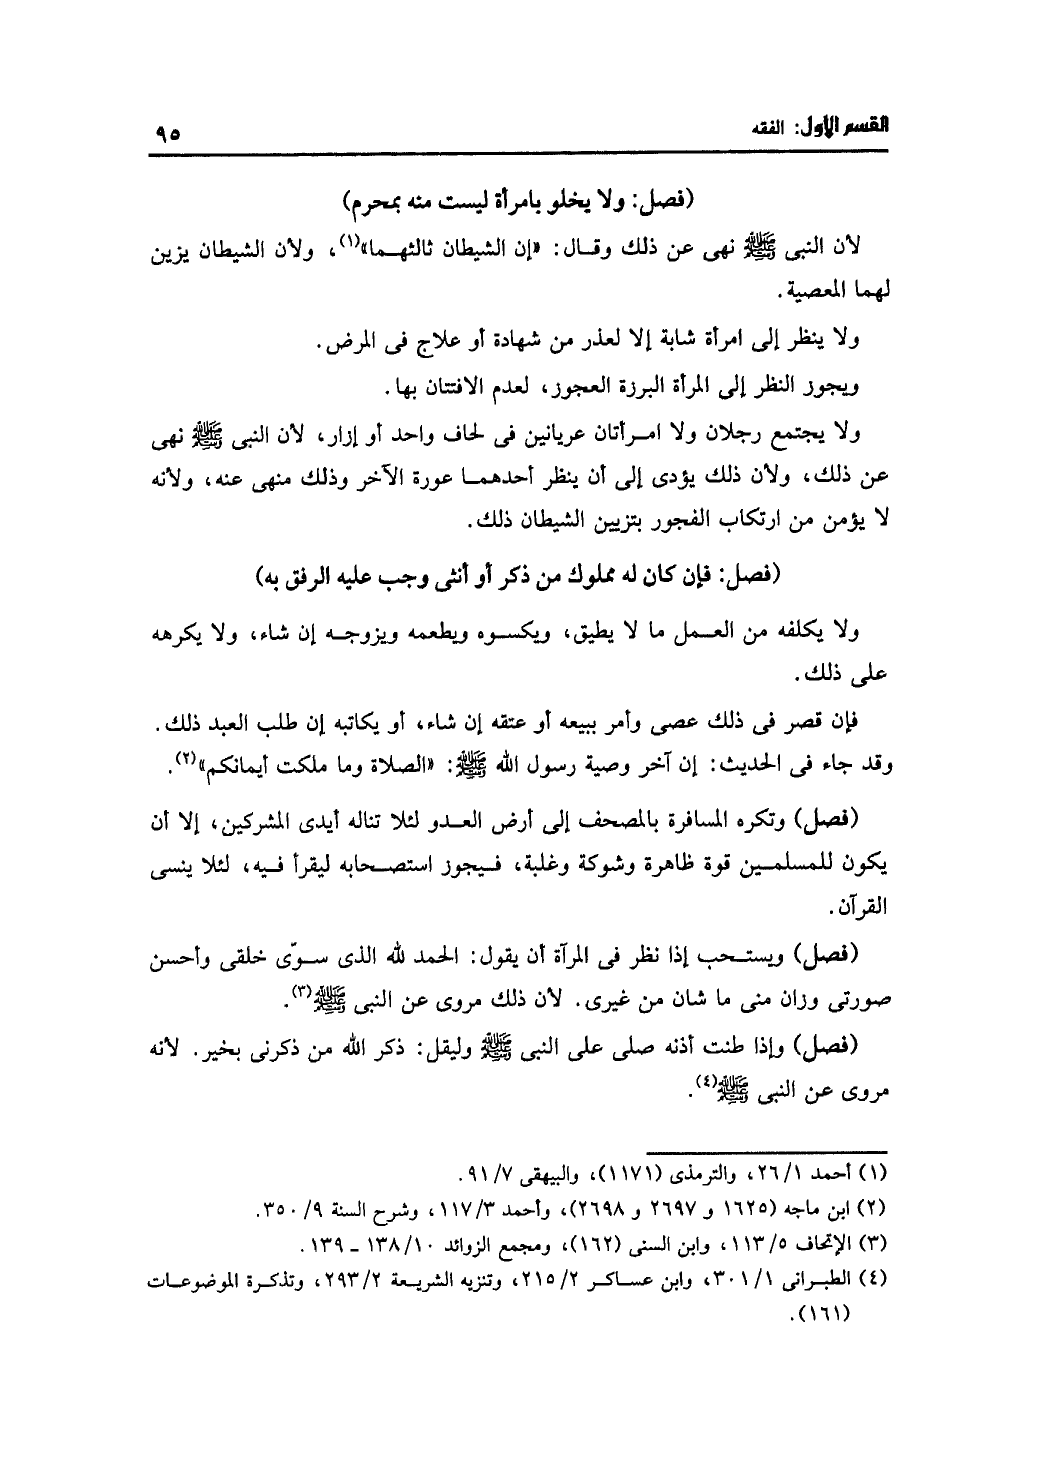 القسم الأول: الفقه
٩٥
(فصل: ولا يخلو بامرأة ليست منه بمحرم)
لأن النبى ﷺ نهى عن ذلك وقـال: «إن الشيطان ثالثهـما»(١)، ولأن الشيطان يزين
لهما المعصية.
ولا ينظر إلى امرأة شابة إلا لعذر من شهادة أو علاج فى المرض.
ويجوز النظر إلى المرأة البرزة العجوز، لعدم الافتتان بها.
ولا يجتمع رجلان ولا امـرأتان عريانين فى لحاف واحد أو إزار، لأن النبى ﷺ نهى
عن ذلك، ولأن ذلك يؤدى إلى أن ينظر أحدهمـا عورة الآخر وذلك منهى عنه، ولأنه
لا يؤمن من ارتكاب الفجور بتزيين الشيطان ذلك.
(فصل: فإن كان له مملوك من ذكر أو أنثى وجب عليه الرفق به)
ولا يكلفه من العـمل ما لا يطيق، ويكسـوه ويطعمه ويزوجـه إن شاء، ولا يكرهه
على ذلك.
فإن قصر فى ذلك عصى وأمر ببيعه أو عتقه إن شاء، أو يكاتبه إن طلب العبد ذلك.
وقد جاء فى الحديث: إن آخر وصية رسول الله ﷺ: «الصلاة وما ملكت أيمانكم»(٢).
(فصل) وتكره المسافرة بالمصحف إلى أرض العـدو لئلا تناله أيدى المشركين، إلا أن
يكون للمسلمـين قوة ظاهرة وشوكة وغلبة، فـيجوز استصـحابه ليقرأ فـيه، لئلا ينسى
القرآن.
(فصل) ويستـحب إذا نظر فى المرآة أن يقول: الحمد لله الذى سـوّى خلقى وأحسن
صورتى وزان منى ما شان من غيرى. لأن ذلك مروى عن النبى ﷺ(٣).
(فصل) وإذا طنت أذنه صلى على النبى ﷺ وليقل: ذكر الله من ذكرنى بخير. لأنه
مروى عن النبى ﷺ(٤).
(١) أحمد ٢٦/١، والترمذى (١١٧١)، والبيهقى ٩١/٧.
(٢) ابن ماجه (١٦٢٥ و ٢٦٩٧ و ٢٦٩٨)، وأحمد ١١٧/٣، وشرح السنة ٣٥٠/٩.
(٣) الإتحاف ١١٣/٥، وابن السنى (١٦٢)، ومجمع الزوائد ١٣٨/١٠ ـ ١٣٩.
(٤) الطبـرانى ٣٠١/١، وابن عسـاكـر ٢١٥/٢، وتنزيه الشريـعة ٢٩٣/٢، وتذكـرة الموضوعـات
(١٦١).